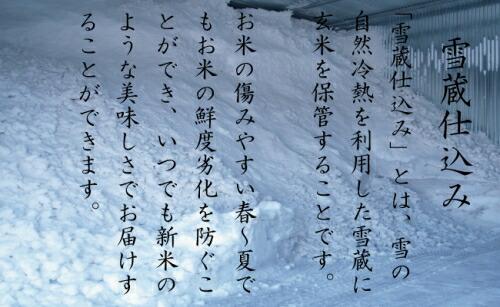 雪蔵仕込み
「雪蔵仕込み」とは、雪の
自然冷熱を利用した雪蔵に
玄米を保管することです。
お米の傷みやすい春～夏で
もお米の鮮度劣化を防ぐこ
とができ、いつでも新米の
ような美味しさでお届けす
ることができます。